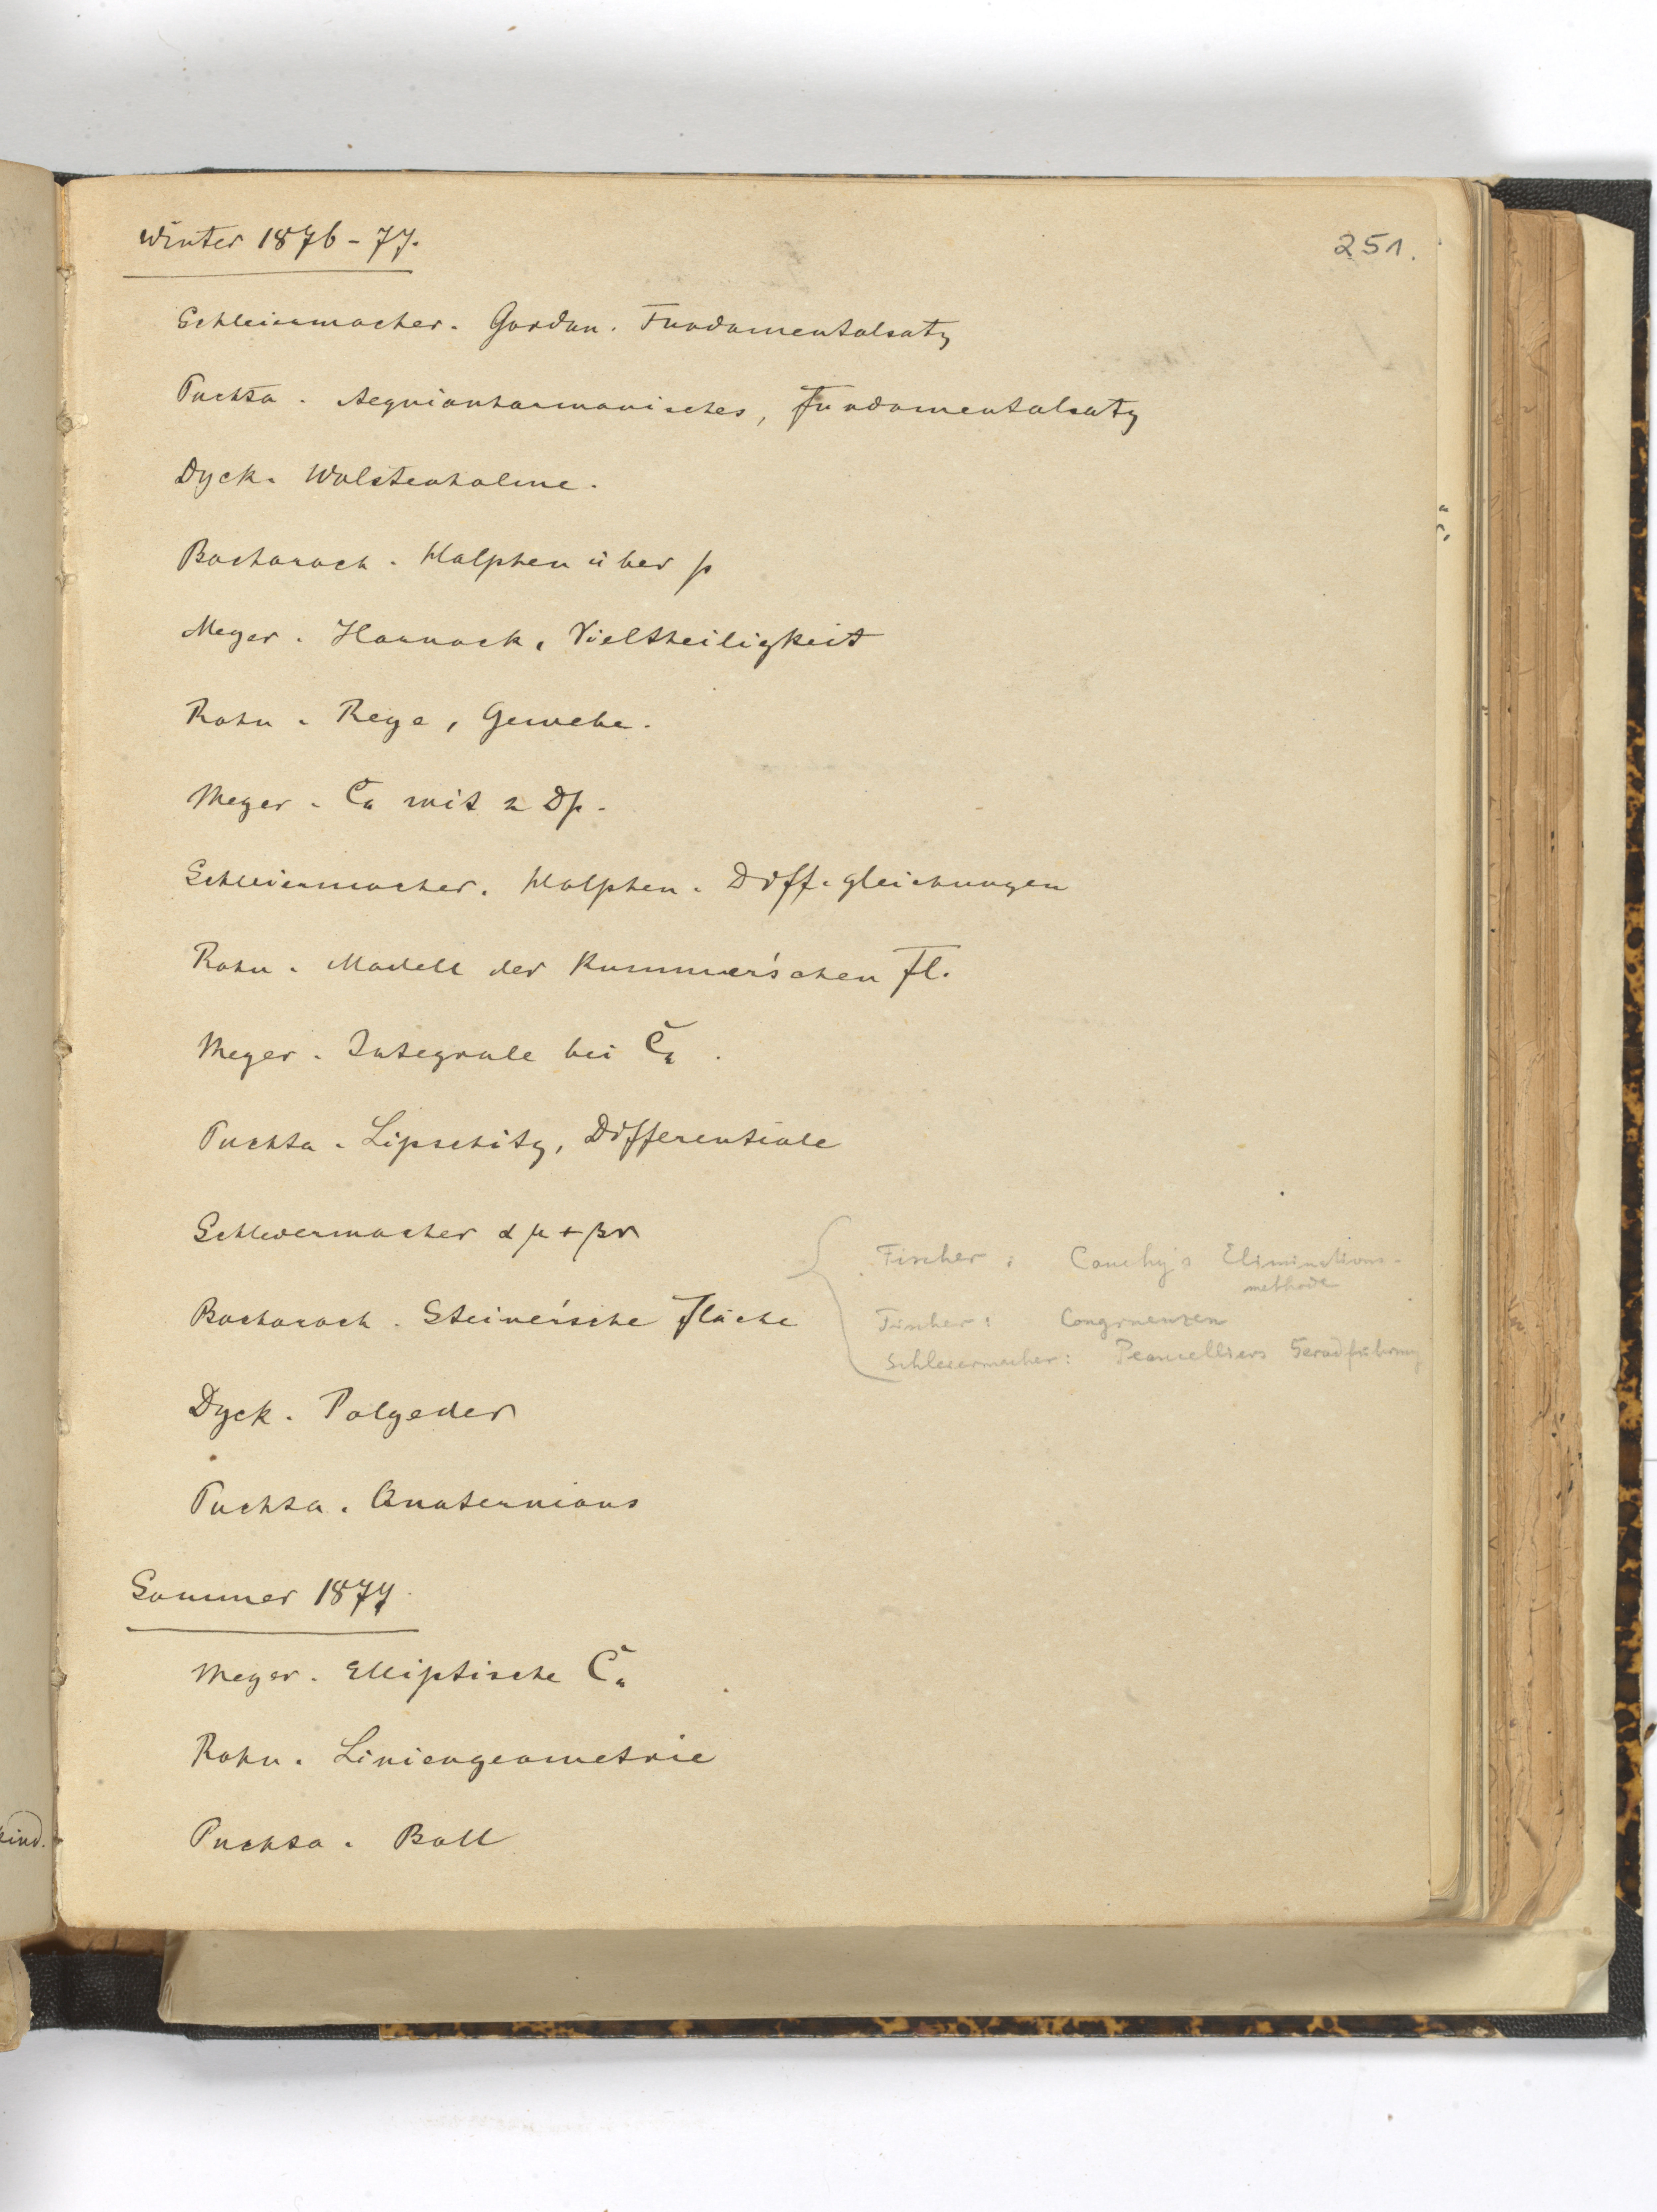 Winter 1876-77.
251.
Schleiermacher. Gordan. Fundamentalsatz
Puchta. Aequianharmonisches, Fundamentalsatz
Dyck. Wolstenholme.
Bacharach. Halphen über p
Meyer. Harnack, Vieltheiligkeit
Rohn. Reye, Gewebe.
Meyer. C₄ mit 2 Dp.
Schleiermacher. Halphen. Diff.gleichungen
Rohn. Modell der Kummer'schen Fl.
Meyer. Integrale bei C₄.
Puchta. Lipschitz, Differentiale
Schleiermacher αμ+βν
Bacharach. Steiner'sche Fläche
Fischer: Cauchy's Eliminations-
methode
Fischer: Congruenzen
Schleiermacher: Peaucelliers Geradführung
Dyck. Polyeder
Puchta. Quaternions
Sommer 1877.
Meyer. Elliptische C₄
Rohn. Liniengeometrie
Puchta. Ball